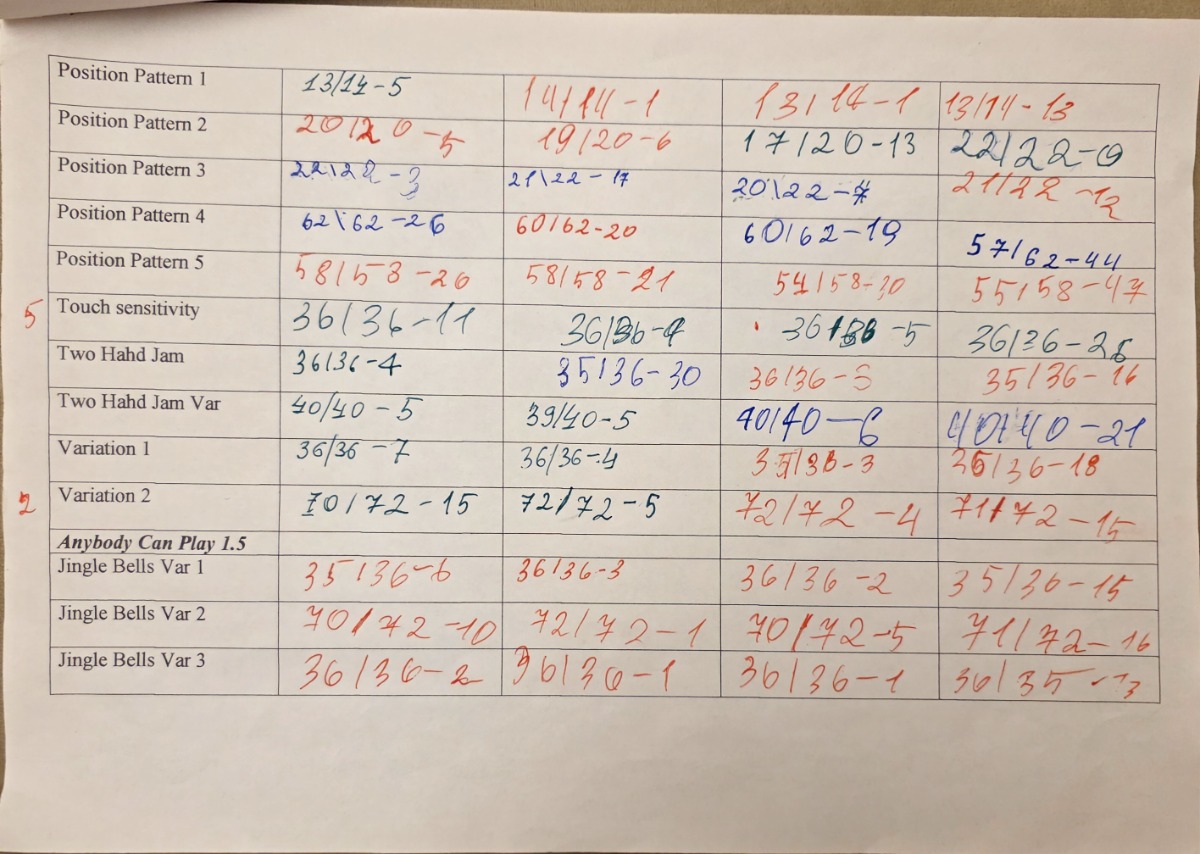 Position Pattern 1 13/14-5 14/14-1 13/14-1 13/14-13
Position Pattern 2 20/20-5 19/20-6 17/20-13 22/22-0
Position Pattern 3 22\22-3 21\22-17 20\22-7 21/22-12
Position Pattern 4 62\62-26 60/62-20 60/62-19 57/62-44
Position Pattern 5 58/58-26 58/58-21 54/58-30 55/58-47
5 Touch sensitivity 36/36-11 36/36-9 36/36-5 36/36-25
Two Hahd Jam 36/36-4 35/36-30 36/36-5 35/36-16
Two Hahd Jam Var 40/40-5 39/40-5 40/40-6 40/40-21
Variation 1 36/36-7 36/36-4 35/36-3 36/36-18
2 Variation 2 70/72-15 72/72-5 72/72-4 71/72-15
Anybody Can Play 1.5
Jingle Bells Var 1 35/36-6 36/36-3 36/36-2 35/36-15
Jingle Bells Var 2 70/72-10 72/72-1 70/72-5 71/72-16
Jingle Bells Var 3 36/36-2 36/36-1 36/36-1 36/35-13